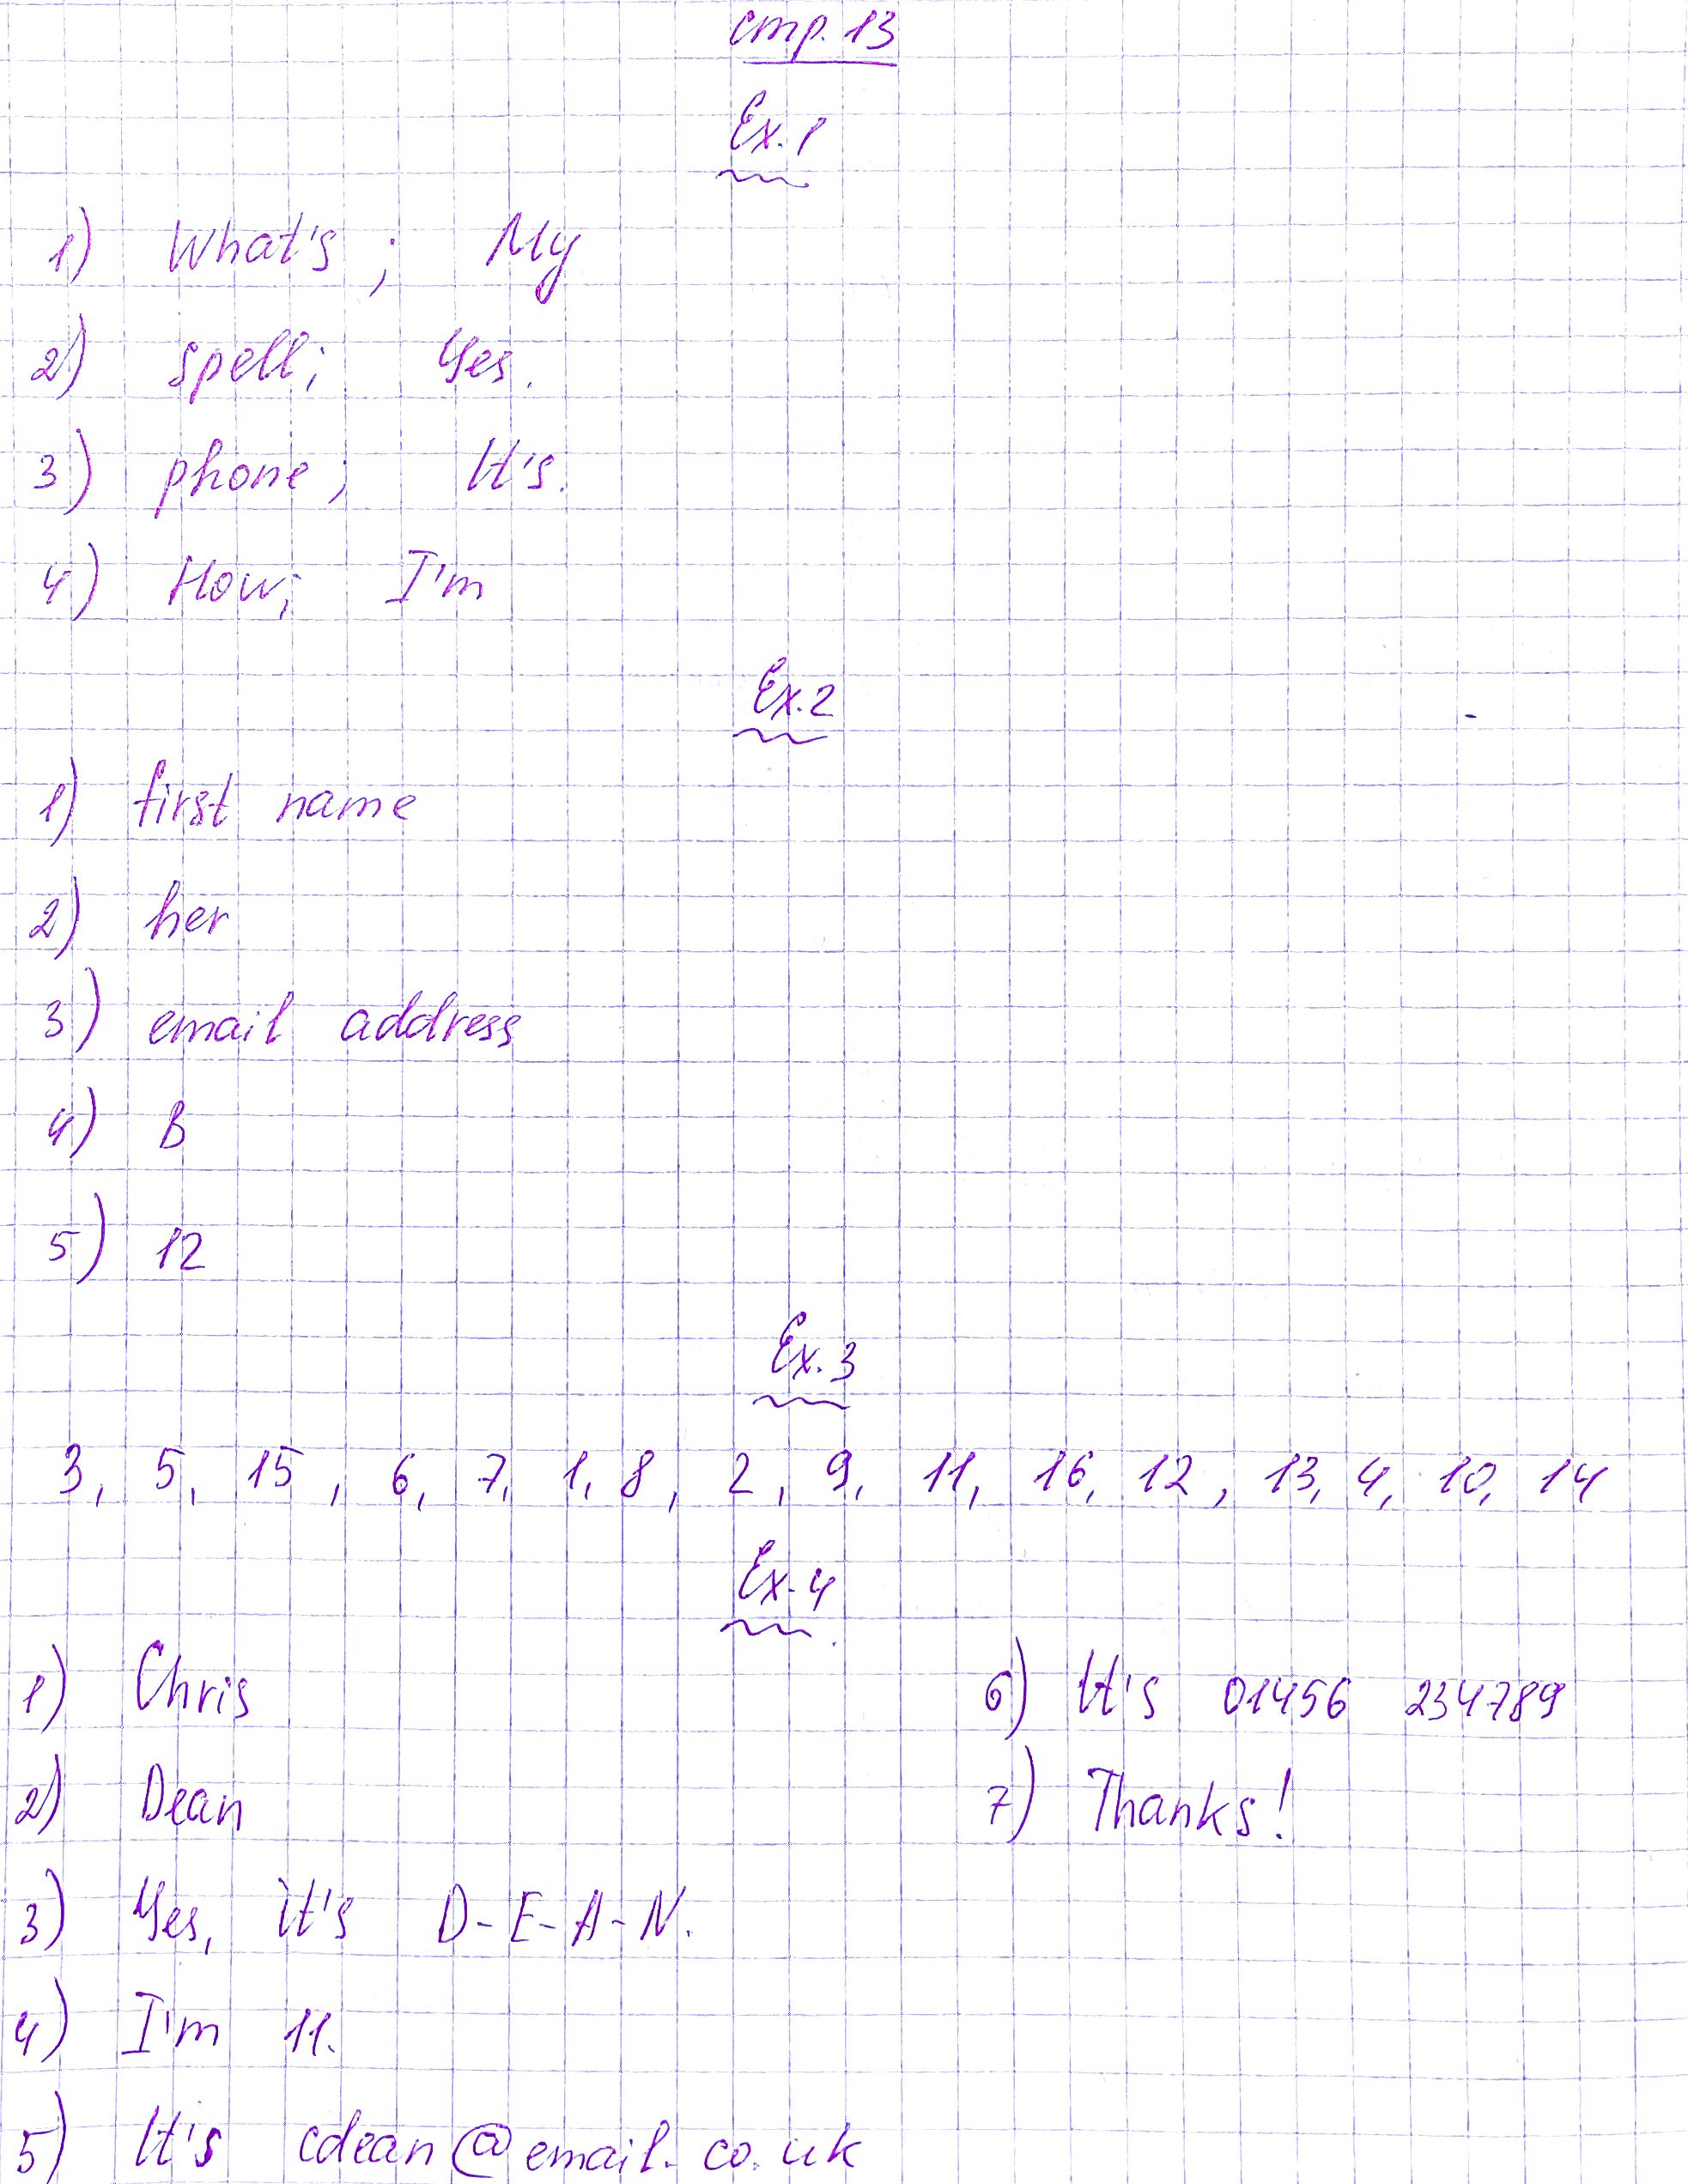 стр. 13
Ex. 1
1) What's; My
2) spell; Yes.
3) phone; It's.
4) How; I'm
Ex. 2
1) first name
2) her
3) email address
4) B
5) 12
Ex. 3
3, 5, 15, 6, 7, 1, 8, 2, 9, 11, 16, 12, 13, 4, 10, 14
Ex. 4
1) Chris
2) Dean
3) Yes, it's D-E-A-N.
4) I'm 11.
5) It's cdean@email.co.uk
6) It's 01456 234789
7) Thanks!